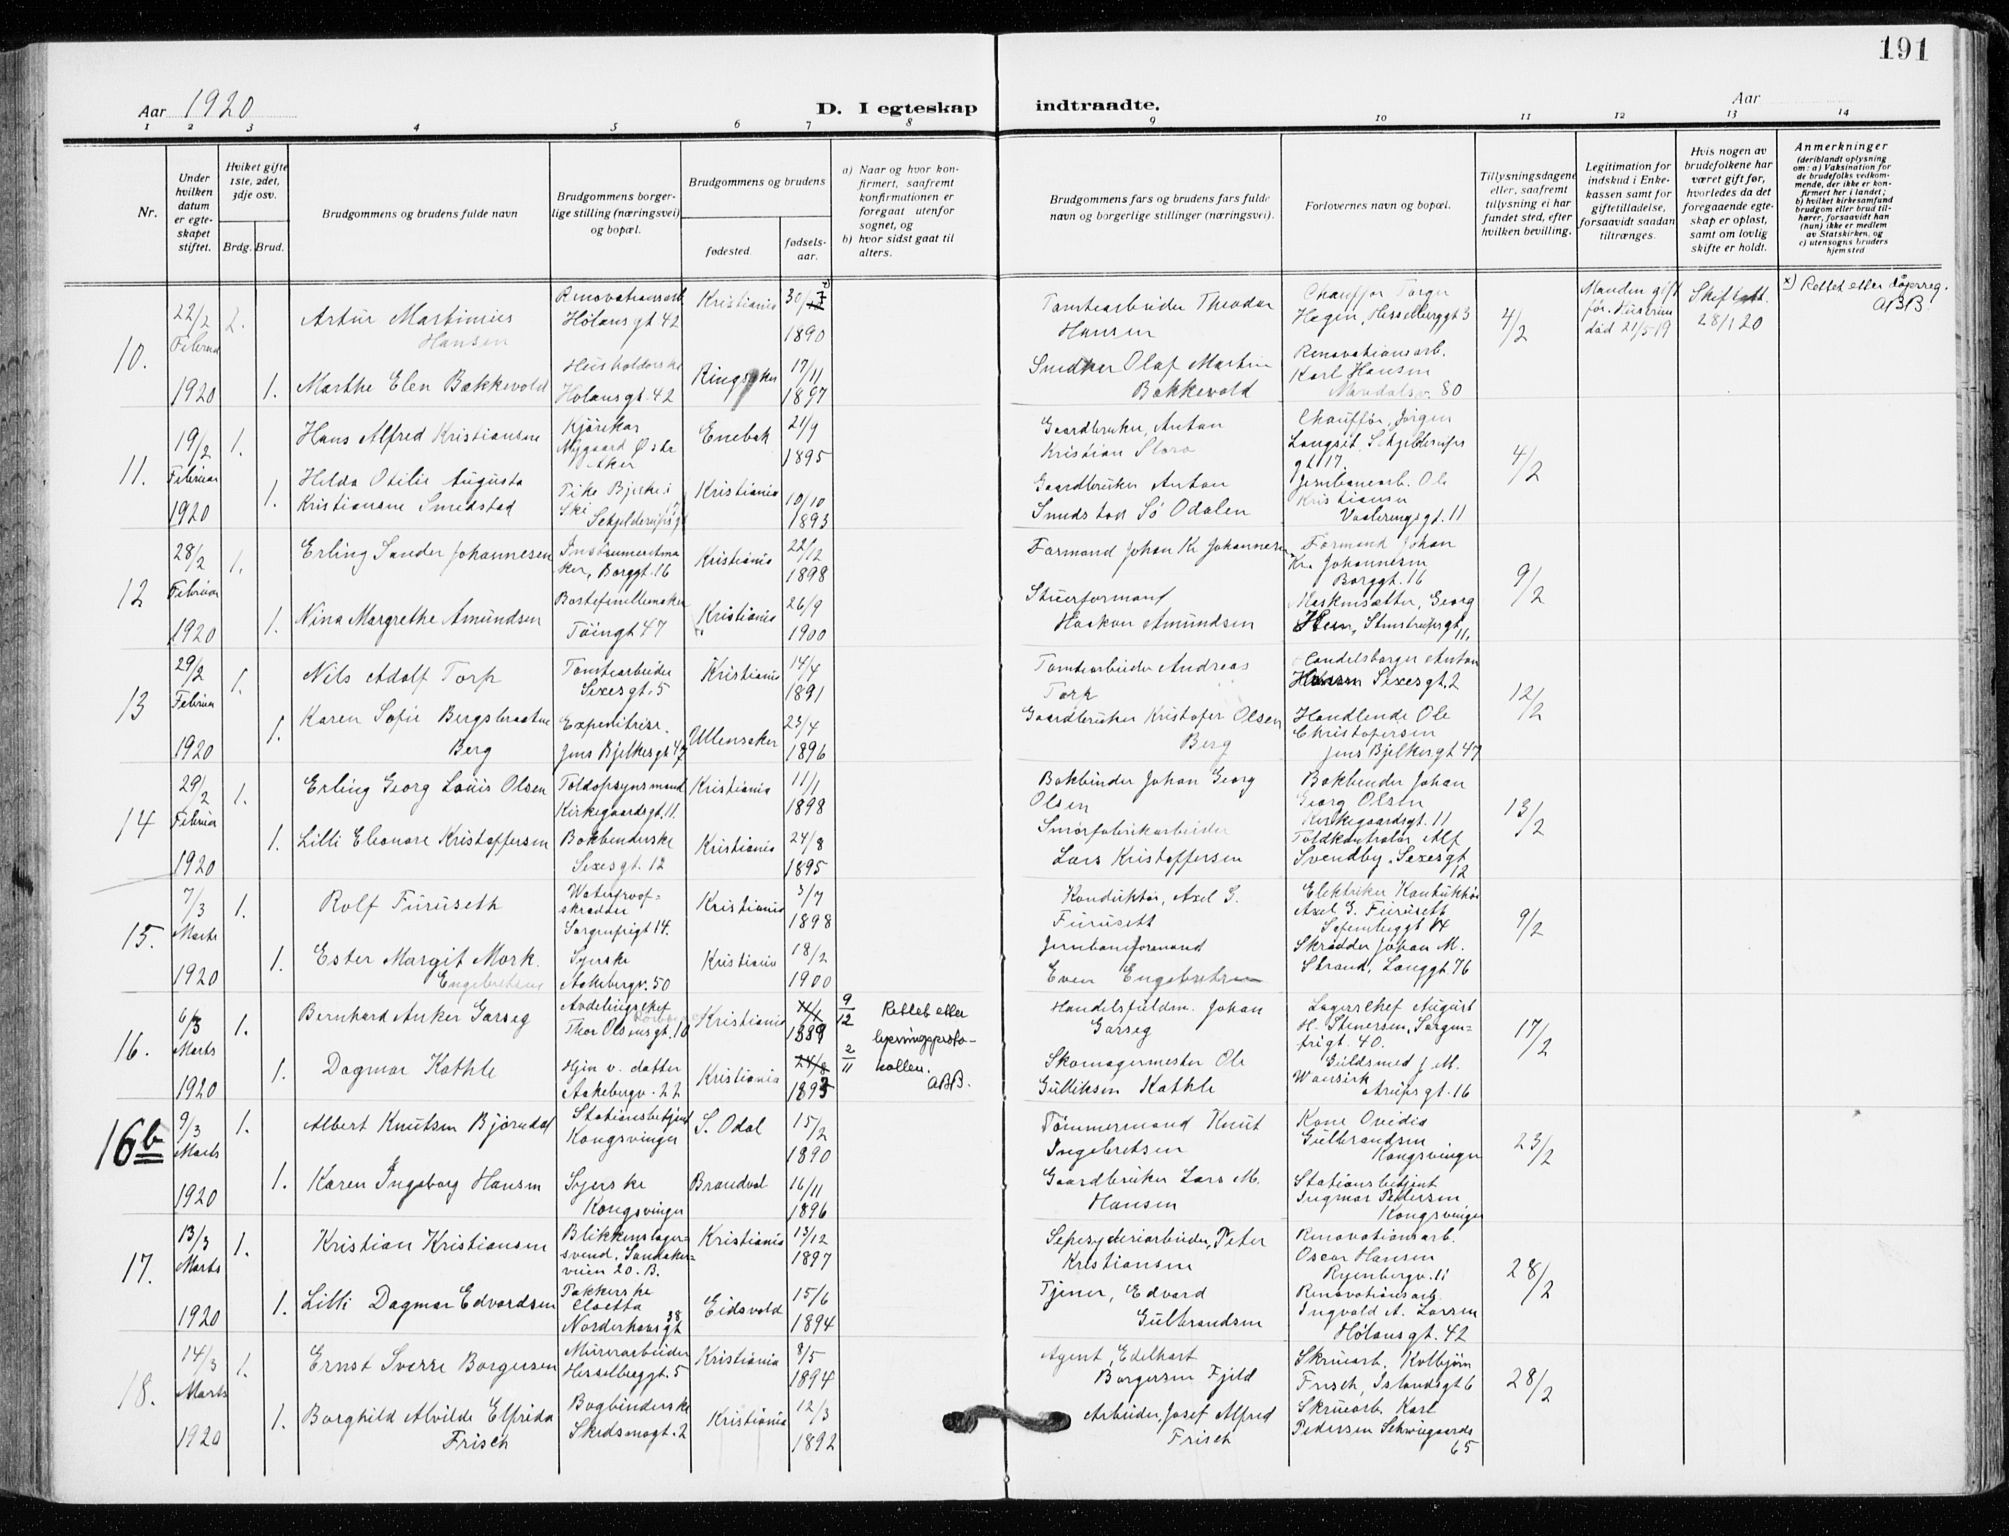 191
Aar 1920
D. I egteskap indtraadte.
Aar
1 2 3 4 5 6 7 8 9 10 11 12 13 14
Nr.
Under hvilken datum er egteskapet stiftet.
Hviket gifte 1ste, 2det, 3dje osv.
Brdg. Brud.
Brudgommens og brudens fulde navn
Brudgommens borgerlige stilling (næringsvei) og bopæl.
Brudgommens og brudens
fødested.
fødselsaar.
a) Naar og hvor konfirmert, saafremt konfirmationen er foregaat utenfor sognet, og
b) hvor sidst gaat til alters.
Brudgommens fars og brudens fars fulde navn og borgerlige stillinger (næringsvei).
Forlovernes navn og bopæl.
Tillysningsdagene eller, saafremt tillysning ei har fundet sted, efter hvilken bevilling.
Legitimation for indskud i Enkekassen samt for giftetilladelse, forsaavidt saadan tiltrænges.
Hvis nogen av brudefolkene har været gift før, hvorledes da det foregaaende egteskap er opløst, samt om lovlig skifte er holdt.
Anmerkninger
(deriblandt oplysning om: a) Vaksination for de brudefolks vedkommende, der ikke er konfirmert her i landet; b) hvilket kirkesamfund brudgom eller brud tilhører, forsaavidt han (hun) ikke er medlem av Statskirken, og c) utensogns bruders hjemsted
10.
22/2 Februar 1920
2.
Artur Martinius Hansen
Renovationsarb. Hølandsgt 42
Kristiania
30/7 1890
Tomtearbeider Theodor Hansen
Chauffør Jørgen Hegin, Hesselberggt 3
4/2
Manden gift før. Hustruen død 21/5 19
Skifteatt. 28/1 20
x) Rettet eller dåpsreg. ABB.
1.
Marthe Elen Bakkevold
Husholderske Hølansgt. 42
Ringsaker
17/11 1897
Snedker Olaf Martin Bakkevold
Renovationsarb. Karl Hansen 80
11.
19/2 Februar 1920
1.
Hans Alfred Kristiansen
Kjørekar Nygaard Østr Aker
Enebak
21/9 1895
Gaardbruker, Anton Kristian
Chauffør, Jørgen gt 17.
4/2
1.
Hilda Otilie Augusta Kristiansen Smedstad
Pike Bjerke i Ski Schjelderupsgt
Kristiania
10/10 1893
Gaardbruker Anton Smedstad Sø Odalen
Jernbanearb. Ole Kristiansen Vaalerengsgt. 11
12
28/2 Februar 1920
1.
Erling Sander Johannesen
Instrumentmaker, Borggt. 16
Kristiania
22/12 1898
Formand Johan Kr Johannesen
Formand Johan Kr. Johannesen Borggt. 16
9/2
1.
Nina Margrethe Amundsen
Portefeuillemaker Tøiengt 47
Kristiania
26/9 1900
Stuerformand Haakon Amundsen
Maskinsætter, Georg
13
29/2 Februar 1920
1.
Nils Adolf Torp
Tomtearbeider Sexesgt. 5
Kristiania
14/4 1891
Tomtearbeider Andreas Torp
Handelsborger Anton Hansen Sexesgt. 2
12/2
1.
Karen Sofie Bergsbraaten Berg
Expeditrise. Jens Bjelkesgt 47
Ullensaker
23/4 1896
Gaardbruker Kristofer Olsen Berg
Handlende Ole Christofersen Jens Bjelkesgt 47
14
29/2 Februar 1920
1.
Erling Georg Louis Olsen
Toldopsynsmand Kirkegaardsgt. 11.
Kristiania
11/1 1898
Bokbinder Johan Georg Olsen
Bokbinder Johan Georg Olsen Kirkegaardsgt. 11
13/2
1.
Lilli Eleonore Kristoffersen
Bokbinderske Sexesgt. 12
Kristiania
24/8 1895
Smørfabrikarbeider Lars Kristoffersen
Toldkontrolør Alf Svendby, Sexesgt 12
15.
7/3 Marts 1920
1.
Rolf Furuseth
Waterproof-skrædder Sorgenfrigt 14.
Kristiania
3/7 1898
Konduktør, Axel G. Furuseth
Elektriker Konduktør Axel G. Furuseth
9/2
1.
Ester Margit Mork. Engebretsen
Syerske Aakebergv. 50
Kristiania
18/2 1900
Jernbaneformand Even Engebretsen
Skrædder Johan M. Strand, Langgt 76
16.
6/3 Marts 1920
1.
Bernhard Anker Garseg
Avdelingschef Thor Olsensgt. 10
Kristiania
11/1 1889
9/12
Rettet eller lysningsprotokollen. ABB.
Handelsfuldm. Johan Garseg
Lagerschef August H. Stenersen, Sorgenfrigt. 40.
17/2
1.
Dagmar Kathle
Hjm v. datter Aakebergv. 22
Kristiania
24/8 1893
2/11
Skomagermester Ole Gulliksen Kathle
Guldsmed J. M. Wansirk Arupsgt. 16
16b
9/3 Marts 1920
1.
Albert Knutsen Bjørndal
Stationsbetjent Kongsvinger
S. Odal
15/2 1890
Tømmermand Knut Ingebretsen
Kone Ovidia Gulbrandsen Kongsvinger
23/2
1.
Karen Ingeborg Hansen
Syerske Kongsvinger
Brandval
16/11 1896
Gaardbruker Lars M. Hansen
Stationsbetjent Ingmar Pedersen Kongsvinger
17.
13/3 Marts 1920
1.
Kristian Kristiansen
Blikkenslagersvend, Sandakerveien 20. B.
Kristiania
13/12 1897
Sepesyderiarbeider, Peter Kristiansen
Renovationsarb. Oscar Hansen Ryenbergv. 11
28/2
1.
Lilli Dagmar Edvardsen
Pakkerske Cloetta Norderhovsgt 38
Eidsvold
15/6 1894
Tjener, Edvard Gulbrandsen
Renovationsarb. Ingvald A. Larsen Hølansgt. 42
18.
14/3 Marts 1920
1.
Ernst Sverre Borgersen
Murerarbeider Hesselberggt. 5
Kristiania
8/5 1894
Agent, Edelhart Borgersen Fjeld
Skruearb. Kolbjørn Frisch, Islandsgt 6
28/2
1.
Borghild Alvilde Elfrida Frisch
Bogbinderske Skedsmogt. 2
Kristiania
12/3 1892
Arbeider, Josef Alfred Frisch
Skruearb. Karl Pedersen Schweigaards 65